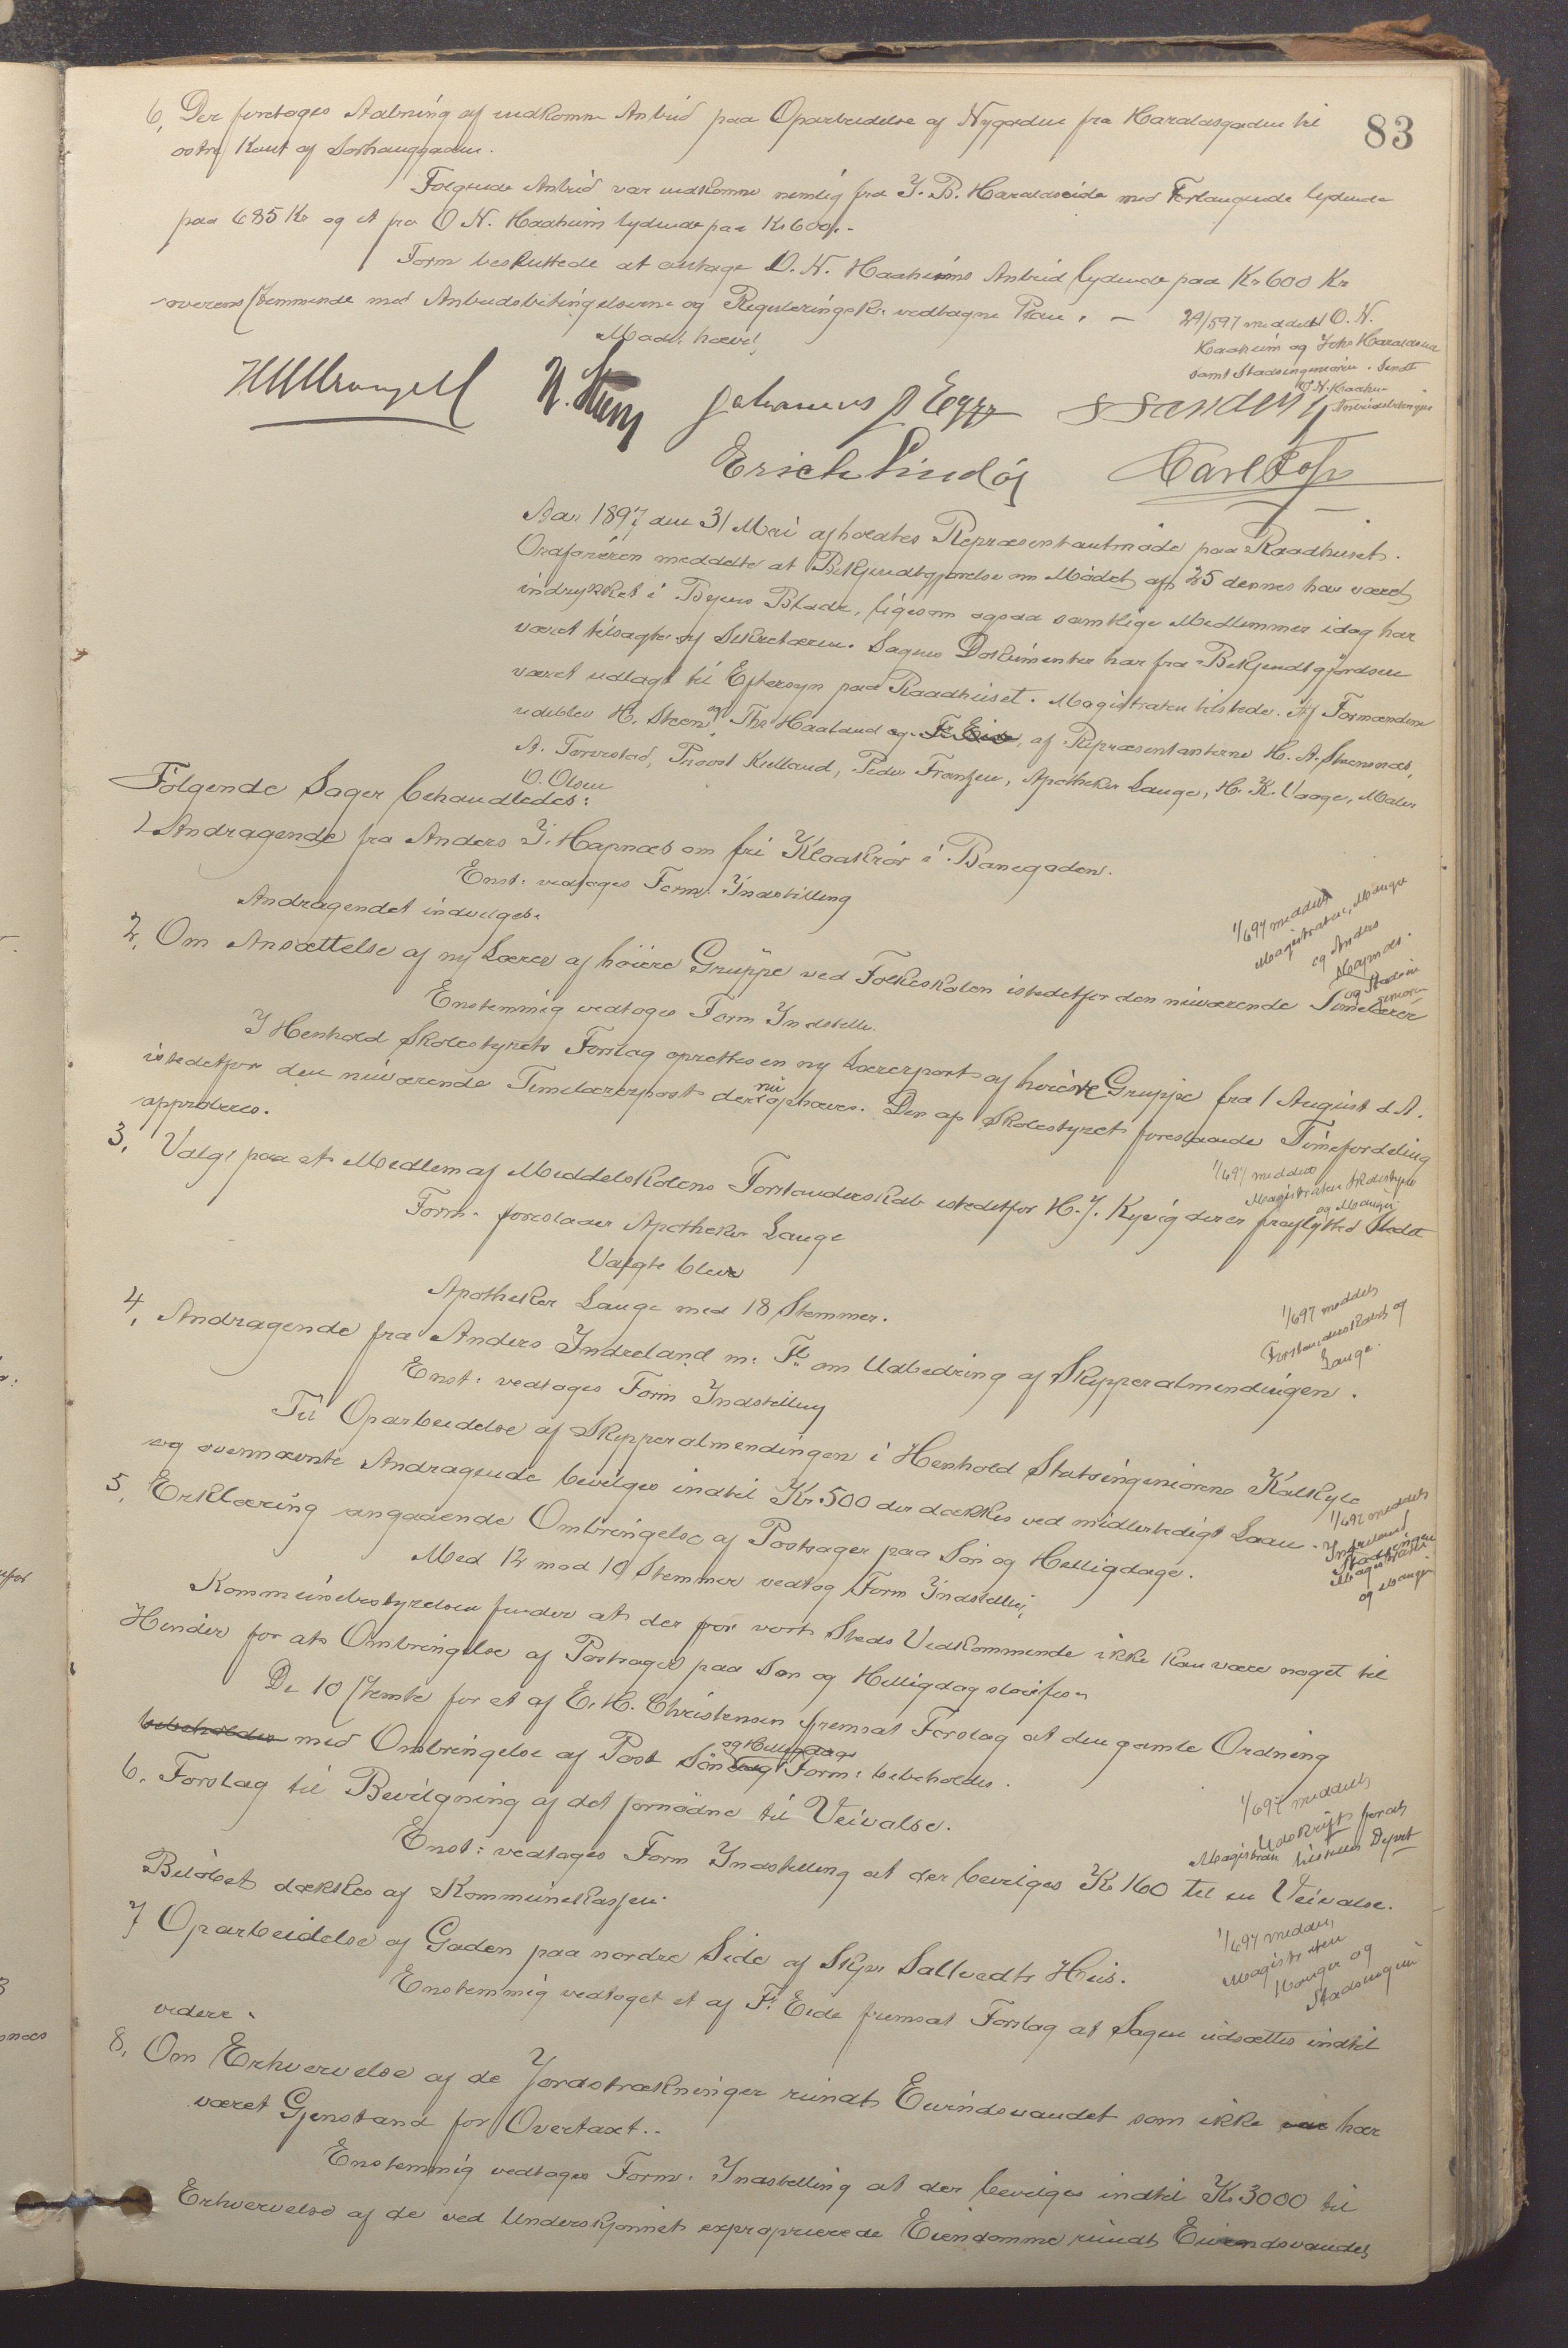 83
6, Der foretages Aabning af indkomne Anbud paa Oparbeidelse af Nygaden fra Haraldsgaden til
østre Kant af Sørhauggaden.
Følgende Anbud var indkomne nemlig fra J. B. Haraldseide med Forlangende lydende
paa 685 Kr og et fra O N. Haaheim lydende paa Kr 600,-
Form besluttede at antage O. N. Haaheims Anbud lydende paa Kr 600 Kr
overensstemmende med Anbudsbetingelserne og Reguleringsk. vedtagne Plan. —
Mødet hævet,
29/5 97 meddelt O. N.
Haaheim og Johs Haraldseide
samt Stadsingeniøren. Sendt
O. N. Haaheim
Anbudsbetingelser
H. Steen Johannes J Egge
Erich Lindøe
Aar 1897 den 31 Mai afholdtes Repræsentantmøde paa Raadhuset.
Ordføreren meddelte at Bekjendtgjørelse om Mødet af 25 dennes har været
indrykket i Byens Blade, ligesom ogsaa samtlige Medlemmer idag har
været tilsagte af Sekretæren. Sagens Dokumenter har fra Bekjendtgjørelsen
været udlagt til Eftersyn paa Raadhuset. Magistraten tilstede. Af Formændene
udeblev H. Steen, og Ths Haaland og F. Eide, af Repræsentanterne H. A. Steensnæs,
A. Torvestad, Provst Kielland, Peder Frantzen, Apotheker Lange, H. K. Vaage, Maler
O. Olsen
Følgende Sager behandledes:
1 Andragende fra Anders J. Hapnæs om fri Kloakrør i Banegaden.
Enst: vedtoges Form: Indstilling
Andragendet indvilges.
1/6 97 meddelt
Magistraten, Mauger
og Anders
Hapnæs.
og Stadsin
geniøren
2, Om Ansættelse af ny Lærer af høiere Gruppe ved Folkeskolen istedetfor den nuværende Timelærer
Enstemmig vedtoges Form Indstill.
I Henhold Skolestyrets Forslag oprettes en ny Lærerpost af høiere Gruppe fra 1 August d. A.
istedetfor den nuværende Timelærerpost der nu ophæves. Den af Skolestyret foreslaaede Timefordeling
approberes.
1/6 97 meddelt
Magistraten Skolestyre
og Mauger.
3, Valg paa et Medlem af Middelskolens Forstanderskab istedetfor H. J. Kyvig der er fraflyttet Stedet
Form. foreslaaer Apotheker Lange
Valgte blev
Apotheker Lange med 18 Stemmer.
1/6 97 meddelt
Forstanderskabet og
Lange.
4, Andragende fra Anders Indreland m. Fl. om Udbedring af Skipperalmendingen.
Enst: vedtoges Form Indstilling
Til Oparbeidelse af Skipperalmendingen i Henhold Statsingeniørens Kalkyle
og ovennævnte Andragende bevilges indtil Kr. 500 der dækkes ved midlertidigt Laan.
1/6 97 meddelt
Indreland
Stadsingen
Magistraten
og Mauger
5, Erklæring angaaende Ombringelse af Postsager paa Søn og Helligdage.
Med 12 mod 10 Stemmer vedtog Form Indstilling,
Kommunebestyrelsen finder at der for vort Steds Vedkommende ikke kan være noget til
Hinder for at Ombringelse af Postsager paa Søn og Helligdag sløifes.
De 10 stemte for et af E. H. Christensen fremsat Forslag at den gamle Ordning
bibeholdes med Ombringelse af Post Søn og Helligdage Form: bibeholdes.
1/6 97 meddelt
Udskrift sendt
Magistraten tilstilles Dept
6. Forslag til Bevilgning af det fornødne til Veivalse.
Enst: vedtages Form Indstilling at der bevilges Kr 160 til en Veivalse.
Beløbet dækkes af Kommunekassen.
1/6 97 meddelt
Magistraten
Mauger og
Stadsingeni
7 Oparbeidelse af Gaden paa nordre Side af Skipr Sallvedts Hus.
Enstemmig vedtoget et af F. Eide fremsat Forslag at Sagen udsættes indtil
videre.
8, Om Erhvervelse af de Jordstrækninger rundt Eivindsvandet som ikke har
været Gjenstand for Overtaxt.
Enstemmig vedtages Form. Indstilling at der bevilges indtil Kr 3000 til
Erhvervelse af de ved Underskjønnet exproprierede Eiendomme rundt Eivindsvandet